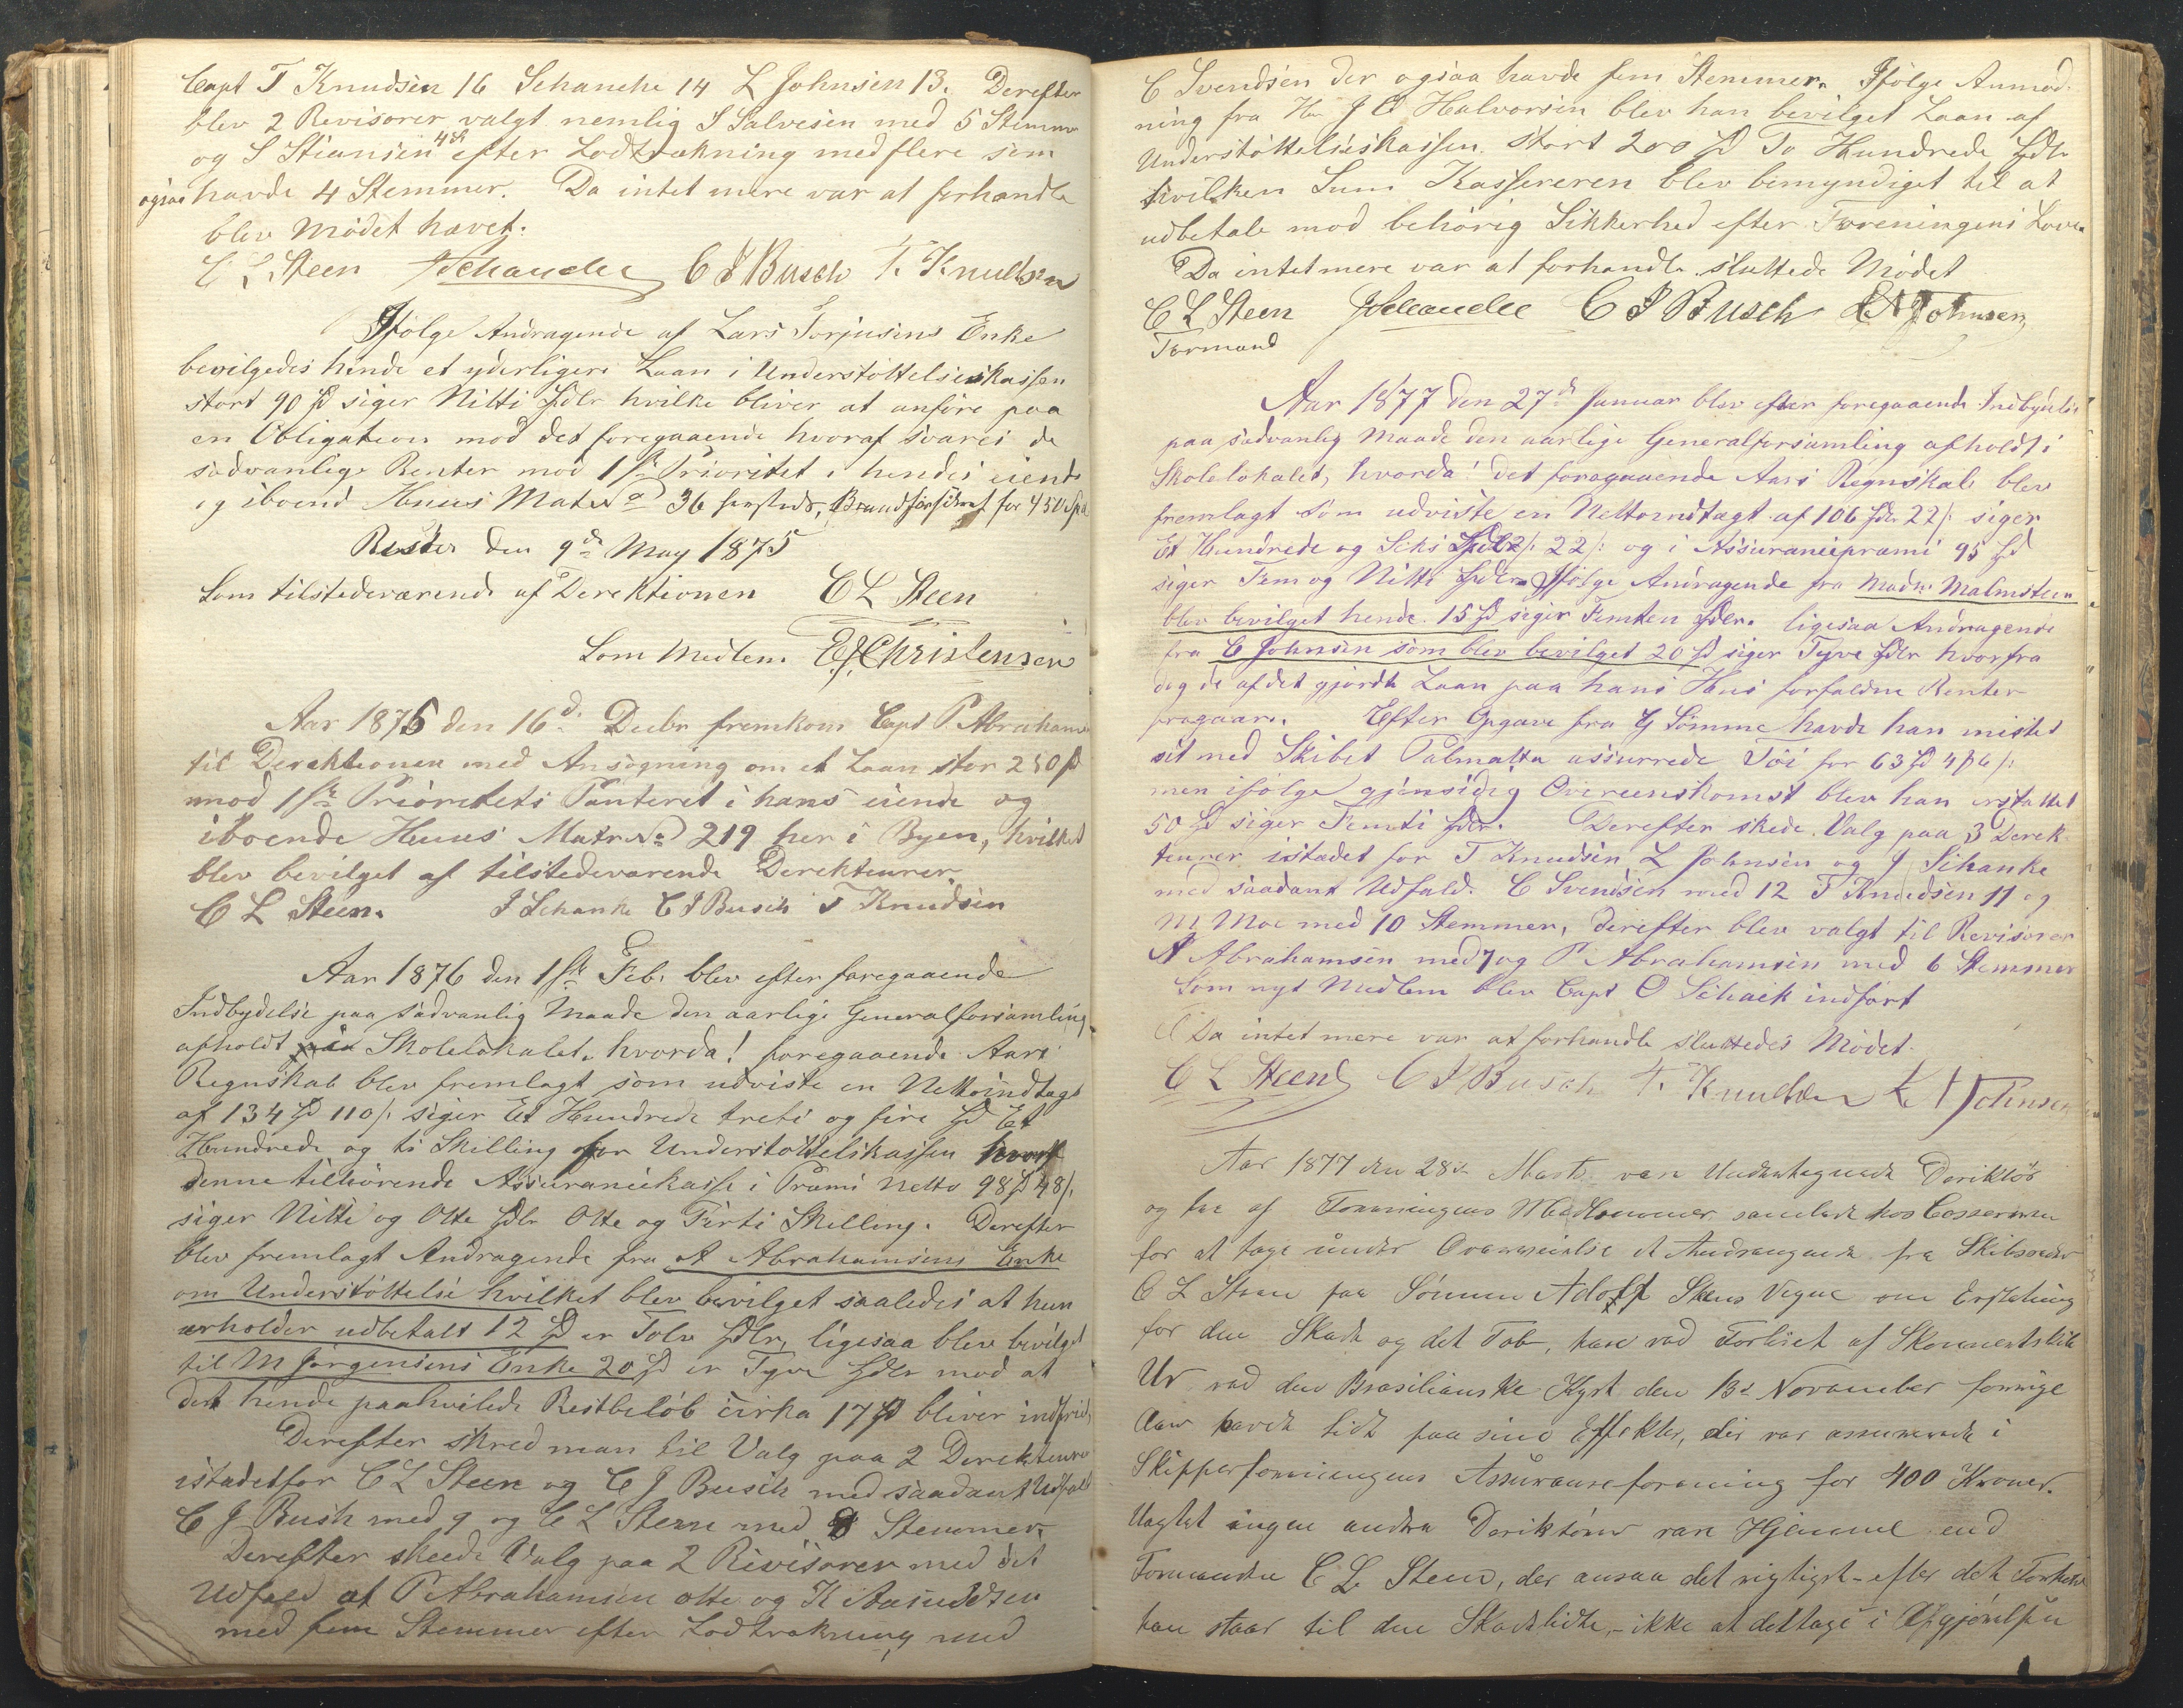 Capt T Knudsen 16 Schanche 14 L Johnsen 13. Derefter
blev 2 Revisorer valgt nemlig S Salvesen med 5 Stemmer
og S Stiansen 4 st efter Lodtrækning med flere som
ogsaa havde 4 Stemmer. Da intet mere var at forhandle
blev Mödet hævet.
C L Steen JSchanche C J Busch T. Knudsen
Ifölge Andragende af Lars Torjusens Enke
bevilgedes hende et yderligere Laan i Understöttelseskassen
stort 90 Sp siger Nitti Spdlr hvilke bliver at anföre paa
en Obligation mod det foregaaende hvoraf svares de
sædvanlige Renter mod 1ste Prioritet i hendes eiende
og iboend Huus Matr No 36 hersteds, Brandforsikret for 450 Spd
Risöer den 9de May 1875
Som tilstedeværende af Derektionen C L Steen
Som Medlem. E J Christensen
Aar 1875 den 16d. Decbr fremkom Capt P. Abrahams
til Derektionen med Ansögning om et Laan stor 250 Sp
mod 1ste Prioritets Panteret i hans eiende og
iboende Huus Matr No 219 her i Byen, hvilket
blev bevilget af tilstedeværende Derekteurer
C L Steen. J Schanke C J Busch T Knudsen
Aar 1876 den 1ste Feb. blev efter foregaaende
Indbydelse paa sædvanlig Maade den aarlige Generalforsamling
afholdt paa Skolelokalet, hvorda! foregaaende Aars
Regnskab blev fremlagt som udviste en Nettoindtagt
af 134 Sp 110 s. siger Et Hundrede treti og fire Sp Et
Hundrede og ti Skilling for Understöttelskassen
denne tilhörende Assurancekasse i Præmi Netto 98 Sp 48 s.
siger Nitti og Otte Spdlr Otte og Firti Skilling. Derefter
blev fremlagt Andragende fra A Abrahamsens Enke
om Understöttelse hvilket blev bevilget saaledes at hun
erholder udbetalt 12 Sp er Tolv Spdlr, ligesaa blev bevilget
til M Jörgensens Enke 20 Sp er Tyve Spdlr mod at
det hende paahvilede Restbelöb cirka 17 Sp bliver indfriet,
Derefter skred man til Valg paa 2 Derekteurer
istadetfor C L Steen og C J Busch med saadant Udfald
C J Bush med 9 og C L Steen med 8 Stemmer.
Derefter skeede Valg paa 2 Revisorer med det
Udfald at P Abrahamsen otte og K Aanudsen
med fem Stemmer efter Lodtrækning med
C Svendsen der ogsaa havde fem Stemmer. Ifölge Anmod-
ning fra Hr J O Halvorsen blev han bevilget Laan af
Understöttelseskassen stort 200 Sp To Hundrede Spdlr
hvilken Sum Kassereren blev bemyndiget til at
udbetale mod behörig Sikkerhed efter Foreningens Love.
Da intet mere var at forhandle sluttede Mödet
C L Steen JSchanche C J Busch L N Johnsen
Formand
Aar 1877 den 27de Januar blev efter foregaaende Indbydelse
paa sædvanlig Maade den aarlige Generalforsamling afholdt i
Skolelokalet, hvorda! det foregaaende Aars Regnskab blev
fremlagt som udviste en Nettoindtagt af 106 Spdlr 22 s. siger
Et Hundrede og Seks Spdlr 22 s. og i Assurancepræmi 95 Sp
siger Fem og Nitti Spdlr. Ifölge Andragende fra Madm Malmsteen
blev bevilget hende 15 Sp siger Femten Spdlr. ligesaa Andragende
fra C Johnsen som blev bevilget 20 Sp siger Tyve Spdlr hvorfra
dog de af det gjordte Laan paa hans Hus forfaldne Renter
fragaar. Efter Opgave fra G Sömme havde han mistet
sit med Skibet Palmatta assurrede Töi for 63 Sp 4 6 s.
men ifölge gjensidig Overeenskomst blev han erstattet
50 Sp siger Femti Spdlr. Derefter skede Valg paa 3 Derek-
teurer istadet for T Knudsen L Johnsen og J Schanke
med saadant Udfald. C Svendsen med 12 T Knudsen 11 og
M Moe med 10 Stemmer, derefter blev valgt til Revisorer
A Abrahamsen med 7 og P Abrahamsen med 6 Stemmer
Som nyt Medlem blev Capt O Schaick indfört
Da intet mere var at forhandle sluttedes Mödet.
C L Steen C J Busch T. Knudsen L N Johnsen
Aar 1877 den 28d Marts var Undertegnede Deriktör
og tre af Foreningens Medlemmer samlede hos Casserern
for at tage under Overveielse et Andragende fra Skibsreder
C L Steen paa Sönnen Adolf Steens Vegne om Erstatning
for den Skade og det Tab, han ved Forliset af Skonnertskib
Ur ved den Brasilianske Kyst den 13d November forrige
Aar havde lidt paa sine Effekter, der var assurerede i
Skipperforeningens Assuranseforening for 400 Kroner.
Uagtet ingen andre Deriktörer var Hjemme end
Formanden C L Steen, der ansaa det rigtigst – efter det Forhold
han staar til den Skadelidte, – ikke at deltage i Afgjörelsen